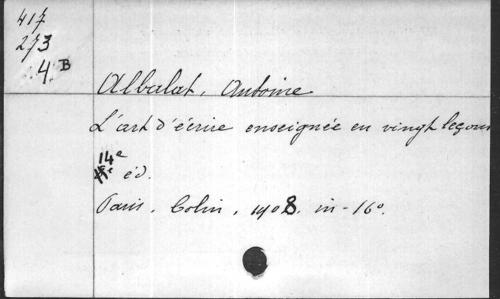 417
273
4. B
Albalat, Antoine
L'art d'écrire enseignée en vingt leçons
14e
éd.
Paris, Colin, 1908. in-16°.